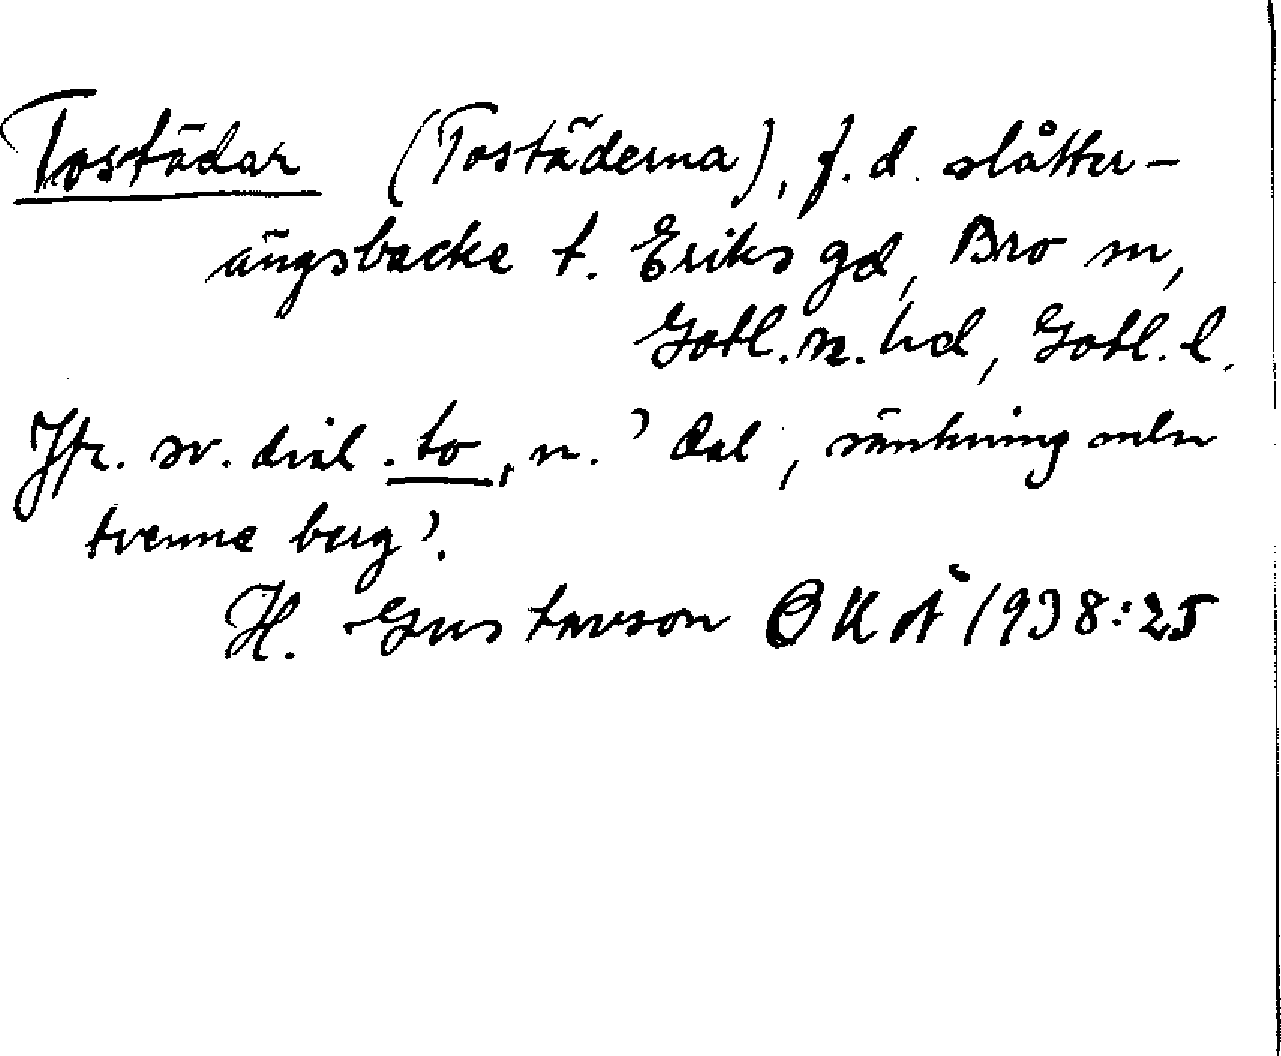 Tostädar (Tostäderna), f.d. slåtter-
ängsbacke t. Eriks gd, Bro sn,
Gotl. n. hd, Gotl. l.
Jfr. sv. dial. to, n. 'dal, sänkning mln
tvenne berg'.
H. Gustavson OKÅ 1938:25